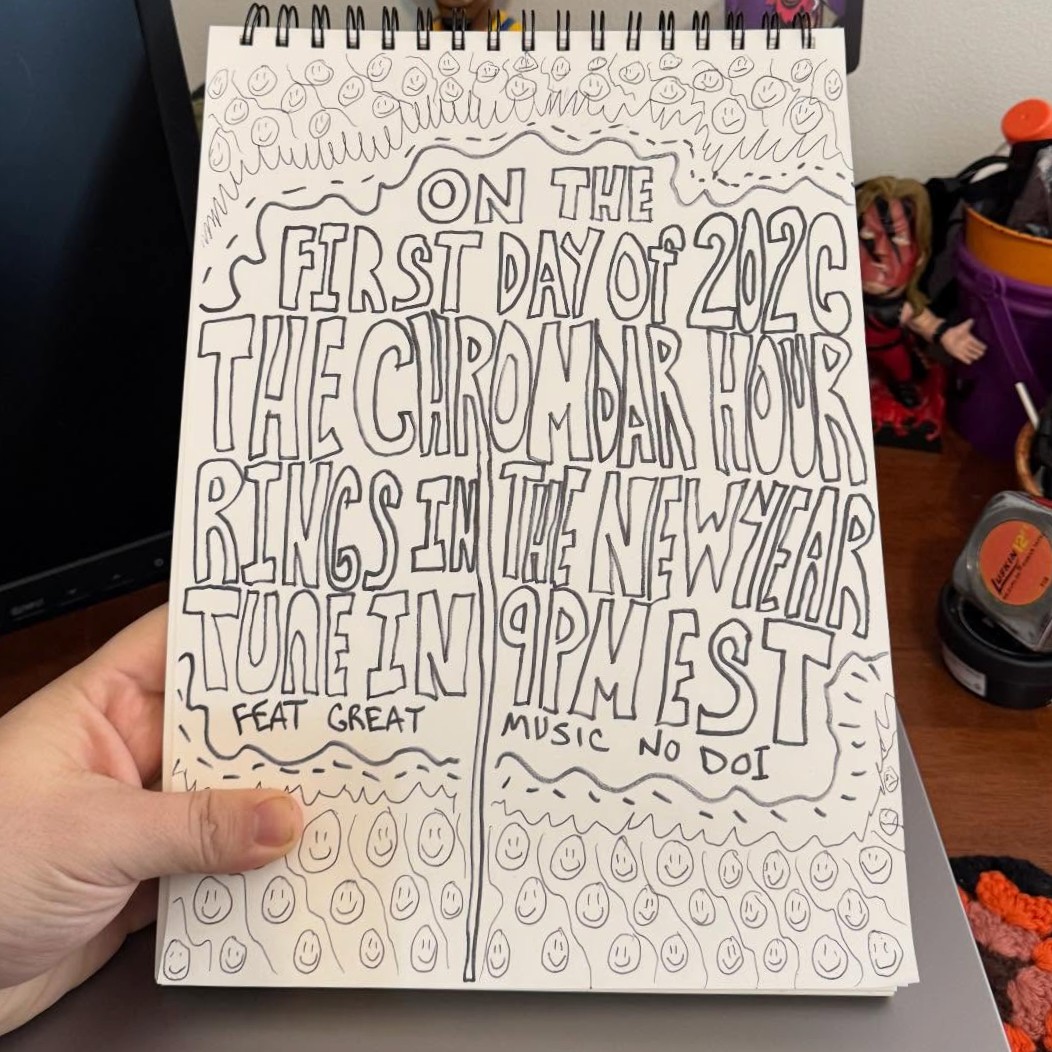 ON THE
FIRST DAY Of 2026
THE CHROMDAR HOUR
RINGS IN THE NEW YEAR
TUNE IN 9PM EST
FEAT GREAT MUSIC NO DOI
LUFKIN 12'